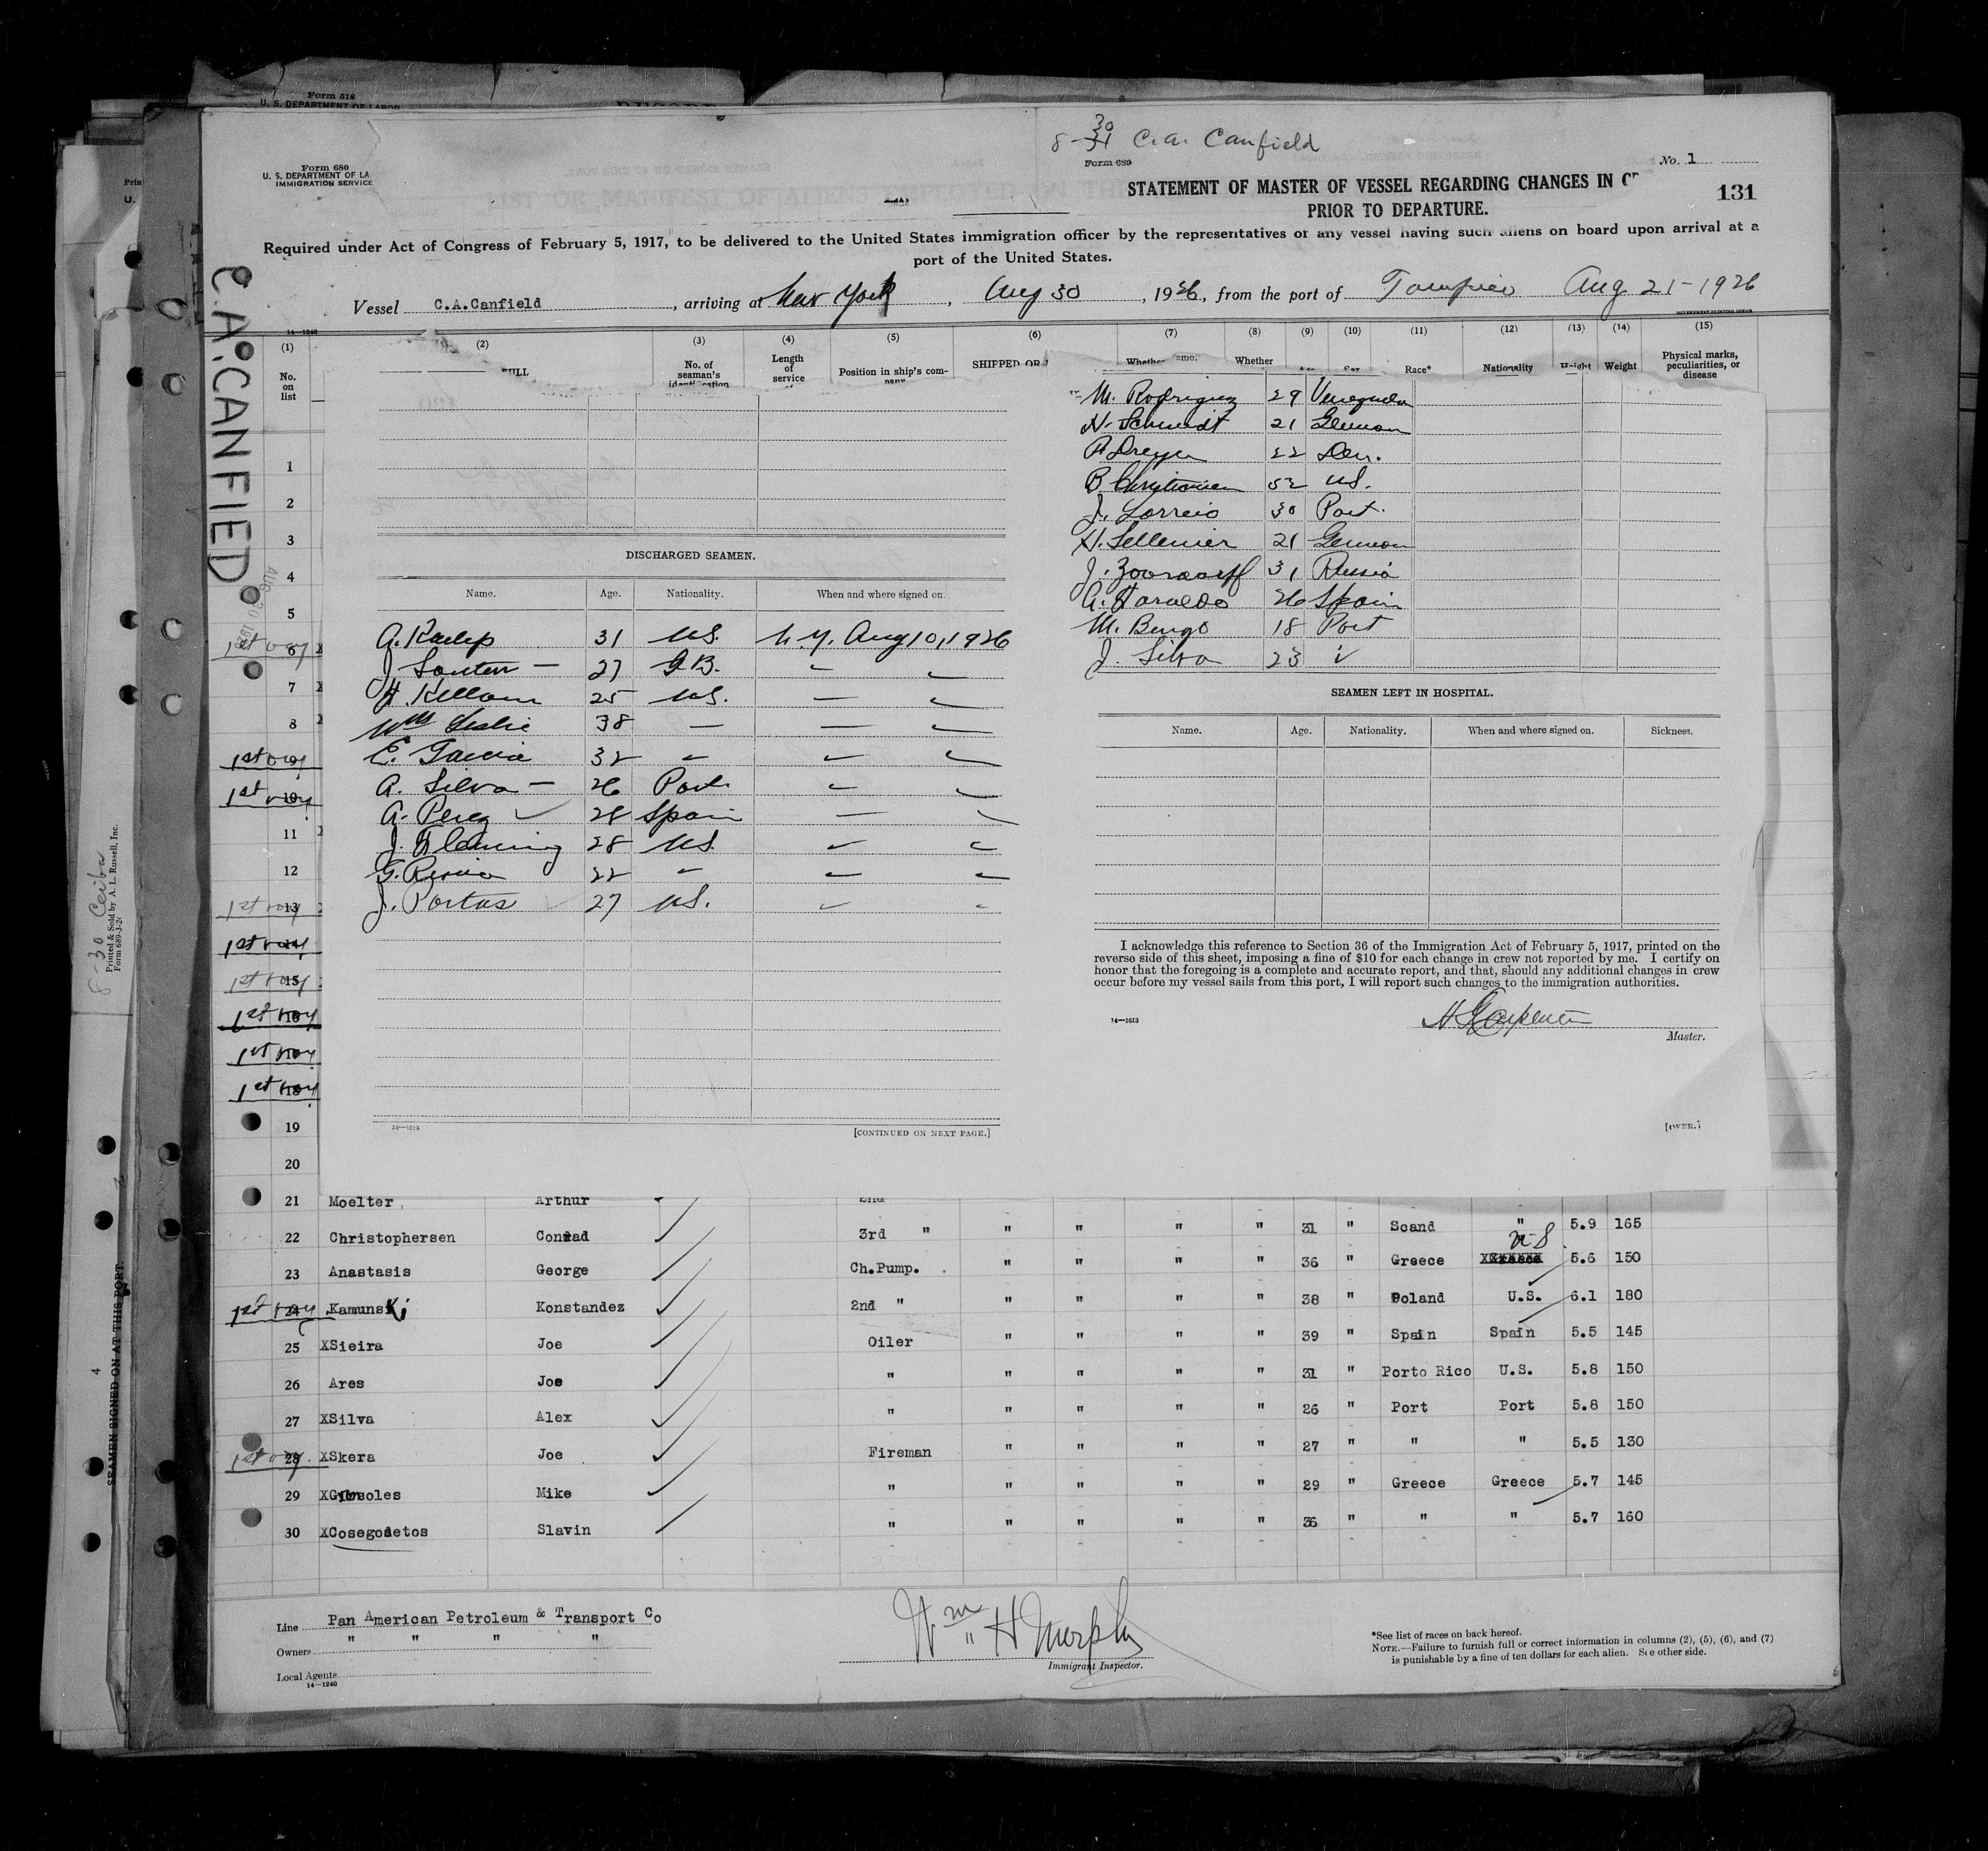 Form 518
U. S. DEPARTMENT OF LABOR
8-30 C.A. Canfield
Form 680
U. S. DEPARTMENT OF LA
IMMIGRATION SERVICE
Form 689
No. 1
STATEMENT OF MASTER OF VESSEL REGARDING CHANGES IN CR
PRIOR TO DEPARTURE.
131
Required under Act of Congress of February 5, 1917, to be delivered to the United States immigration officer by the representatives of any vessel having such aliens on board upon arrival at a
port of the United States.
Vessel C.A.Canfield, arriving at New York, Aug 30, 1926, from the port of Tampico Aug 21-1926
C.A. CANFIELD
14-1240
GOVERNMENT PRINTING OFFICE
(1) (2) (3) (4) (5) (6) (7) (8) (9) (10) (11) (12) (13) (14) (15)
No. on list
FULL
No. of seaman's identification
Length of service
Position in ship's com-pany
SHIPPED OR
Whether
ame.
Whether
Age
Sex
Race*
Nationality
Height
Weight
Physical marks, peculiarities, or disease
M. Rodriguez 29 Venezuela
H. Schmidt 21 German
P. Dreyer 22 Den.
B. Christiansen 52 US.
J. Lorreio 30 Port.
H. 21 German
J. 31 Russia
A. 26 Spain
M. Bengo 18 Port
J. Silva 23 "
SEAMEN LEFT IN HOSPITAL.
Name. Age. Nationality. When and where signed on. Sickness.
DISCHARGED SEAMEN.
Name. Age. Nationality. When and where signed on.
A. 31 US. N.Y. Aug 10, 1926
J. 27 G.B.
H. Kellam 25 US.
Wm Leslie 38 "
E. Garcia 32 "
A. Silva 26 Port
A. Perez 28 Spain
J. Fleming 28 US.
G. 22 "
J. Portus 27 US.
14—1613
[CONTINUED ON NEXT PAGE.]
I acknowledge this reference to Section 36 of the Immigration Act of February 5, 1917, printed on the
reverse side of this sheet, imposing a fine of $10 for each change in crew not reported by me. I certify on
honor that the foregoing is a complete and accurate report, and that, should any additional changes in crew
occur before my vessel sails from this port, I will report such changes to the immigration authorities.
14—1613
Master.
[OVER.]
AUG 30 1926
1
2
3
4
5
1st voy 6
7
8
1st voy 9
1st voy 10
11
12
1st voy 13
1st voy 14
1st voy 15
1st voy 16
1st voy
1st voy 18
19
20
21 Moelter Arthur 2nd
22 Christophersen Conrad 3rd " " " " " 31 " Scand " 5.9 165
23 Anastasis George Ch.Pump. " " " " 36 " Greece U.S. 5.6 150
1st voy 24 Kamunski Konstandez 2nd " " " " " 38 " Poland U.S. 6.1 180
25 XSieira Joe Oiler " " " " 39 " Spain Spain 5.5 145
26 Ares Joe " " " " " 31 " Porto Rico U.S. 5.8 150
27 XSilva Alex " " " " " 26 " Port Port 5.8 150
1st voy. 28 XSkera Joe Fireman " " " " 27 " " " 5.5 130
29 Mike " " " " " 29 " Greece Greece 5.7 145
30 XCosegodetos Slavin " " " " " 36 " " " 5.7 160
Line Pan American Petroleum & Transport Co
Owners " " " "
Local Agents
14—1240
Wm H Murphy
Immigrant Inspector.
*See list of races on back hereof.
NOTE.—Failure to furnish full or correct information in columns (2), (5), (6), and (7)
is punishable by a fine of ten dollars for each alien. See other side.
8-30 Ceiba
Printed & Sold by A. L. Russell, Inc.
Form 689-3-24
SEAMEN SIGNED ON AT THIS PORT.
4